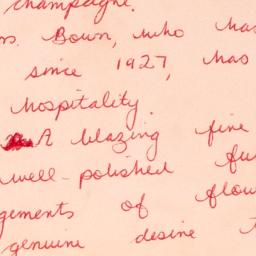 champagne.
Bown, who has
since 1927, has
hospitality.
A blazing fine
well-polished fur
gements of flow
genuine desire